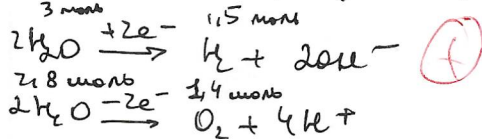 3 моль 1,5 моль
2H₂O +2e⁻ → H₂ + 2OH⁻
2,8 моль 1,4 моль
2H₂O -2e⁻ → O₂ + 4H⁺
+